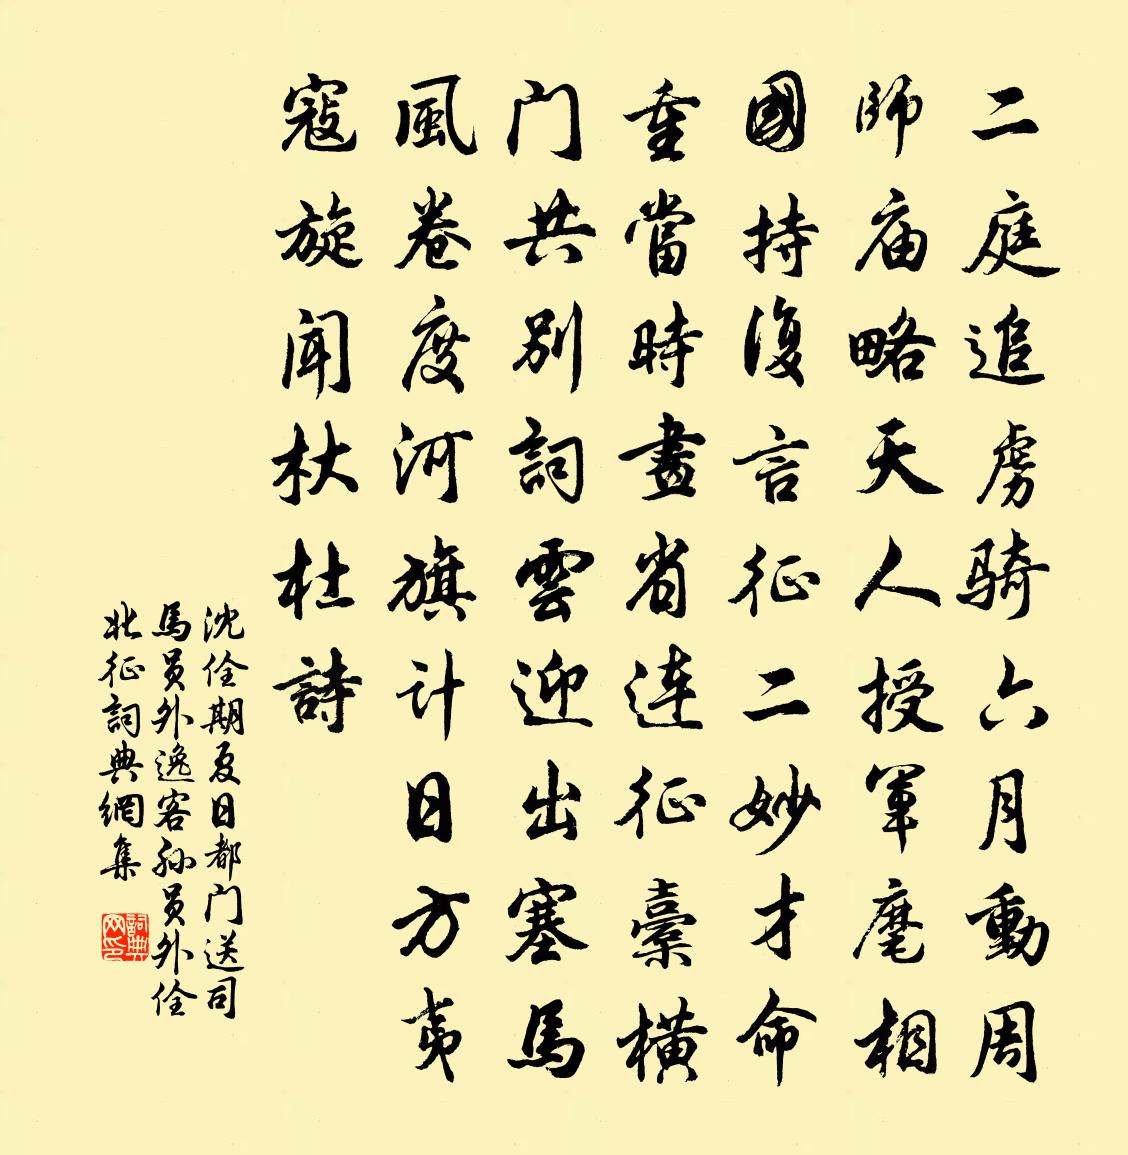 二庭追虏骑六月動周
師庙略天人授軍麾相
國持復言征二妙才命
重當時畫省連征橐橫
门共別詞雲迎出塞馬
風卷度河旗计日方夷
寇旋闻杕杜詩
沈佺期夏日都门送司
馬员外逸客孙员外佺
北征詞典網集
詞典网印